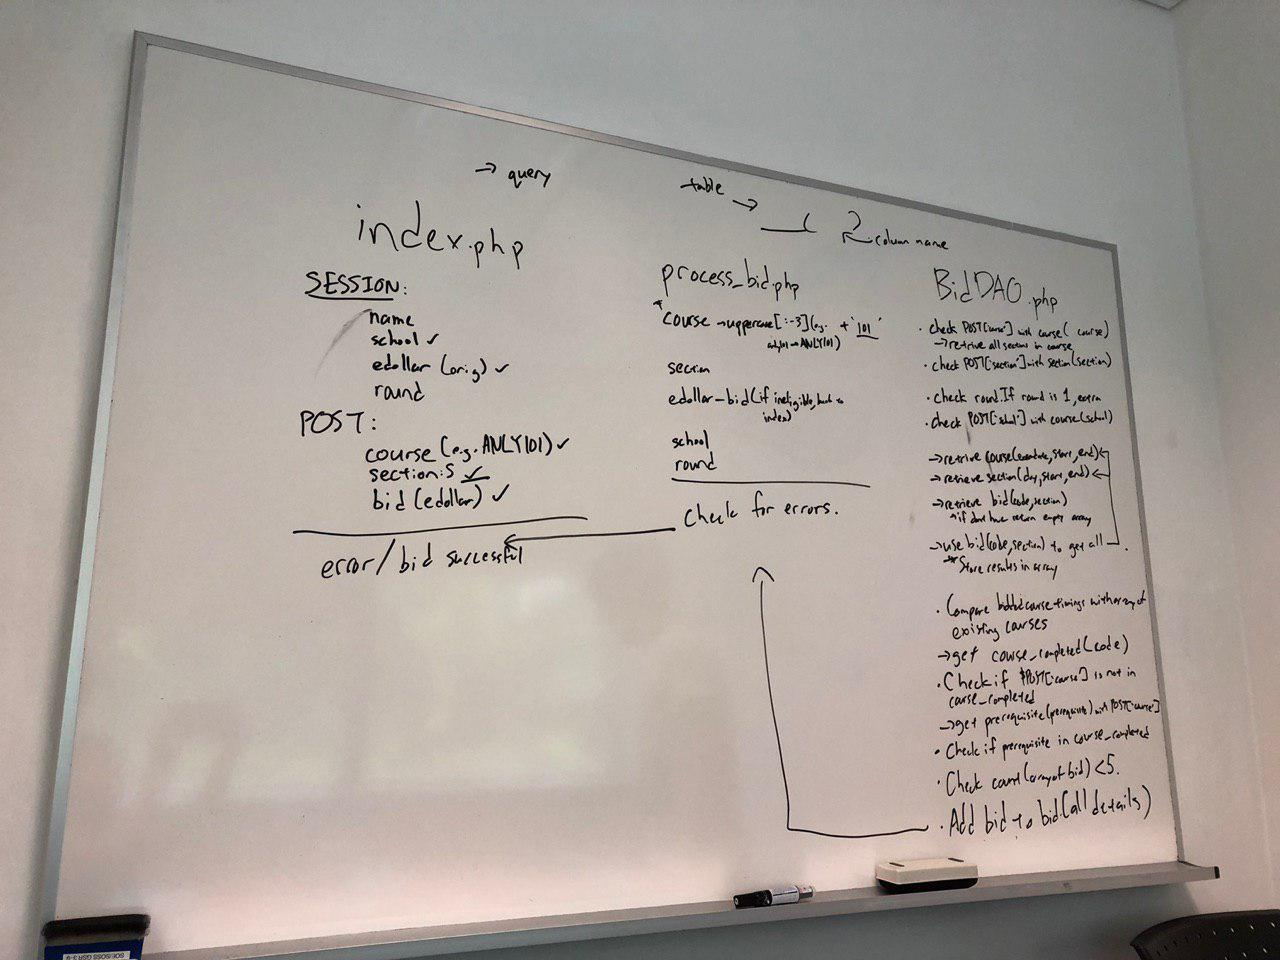 → query
table → __( )
column name
index.php
SESSION:
name
school ✓
edollar (orig) ✓
round
POST:
course (e.g. ANLY101) ✓
section: S ✓
bid (edollar) ✓
error/bid successful
process_bid.php
*course → uppercase[:-3] (e.g. + '101'
anly101 → ANLY101)
section
edollar-bid (if ineligible, back to
index)
school
round
Check for errors.
BidDAO.php
• check POST['course'] with course( course)
→ retrive all sections in course
• check POST['section'] with section(section)
• check round. If round is 1, extra
• check POST['school'] with course(school)
→ retrive course(examdate, start, end)
→ retrieve section(day, start, end)
→ retrieve bid(code, section)
* if dont have return empty array
→ use bid(code, section) to get all
* Store results in array
• Compare bidded course timings with array of
existing courses
→ get course_completed(code)
• Check if $POST['course'] is not in
course_completed
→ get prerequisite(prerequisite) with POST['course']
• Check if prerequisite in course_completed
• Check count(array of bid) <5.
• Add bid to bid(all details)
SOE/SOSS GSR 3-6